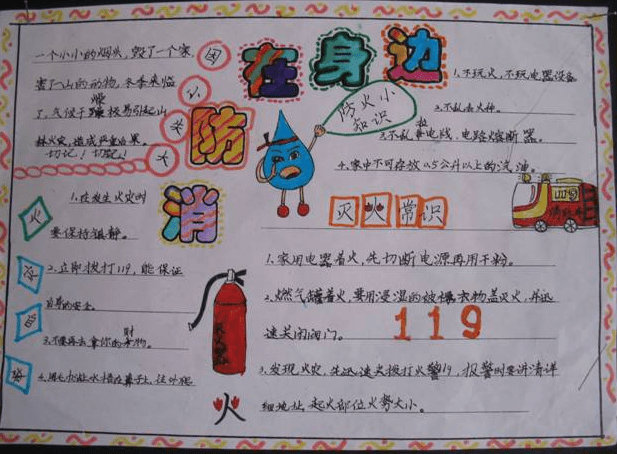 消防在身边
一个小小的烟头，毁了一个家，
害了一山的动物，冬季来临
了，气候干燥极易引起山
林火灾，造成严重后果。
切记！切记！
防火小
知识
1.不玩火，不玩电器设备
2.不乱丢火种。
3.不乱私电线、电路熔断器。
4.家中不可存放0.5公升以上的汽油。
火
1.在发生火灾时
要保持镇静。
2.立即拨打119，能保证
自身的安全。
3.不要再去拿你的财物。
灭火常识
1.家用电器着火，先切断电源再用干粉。
2.燃气罐着火，要用浸湿的被褥衣物盖灭火，并迅
速关闭阀门。
119
3.发现火灾，先迅速火拨打火警119，报警时要讲清详
细地址、起火部位火势大小。
火